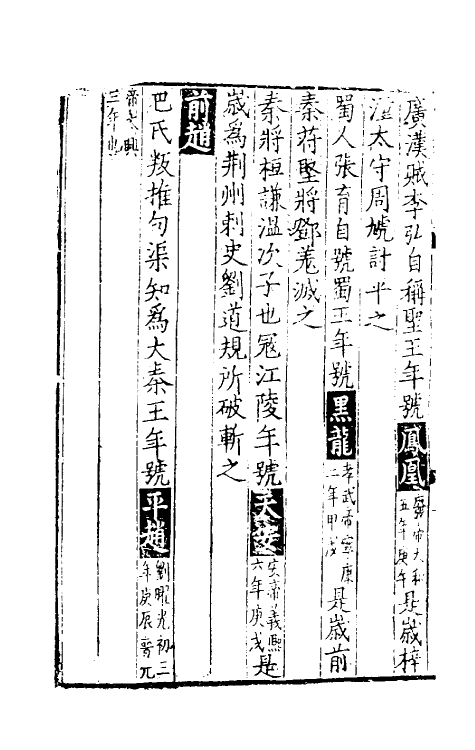 廣漢賊李弘自稱聖王年號鳳凰廢帝大和五年庚午是歲梓
潼太守周虓討平之
蜀人張育自號蜀王年號黑龍孝武帝寧康二年甲戌是歲前
秦苻堅將鄧羗滅之
秦將桓謙溫次子也冦江陵年號天安帝義熙六年庚戌是
歲為荆州刺史劉道規所破斬之
前趙
巴氏叛推句渠知爲大秦王年號平趙劉曜光初三年庚辰晉元
帝大興三年也